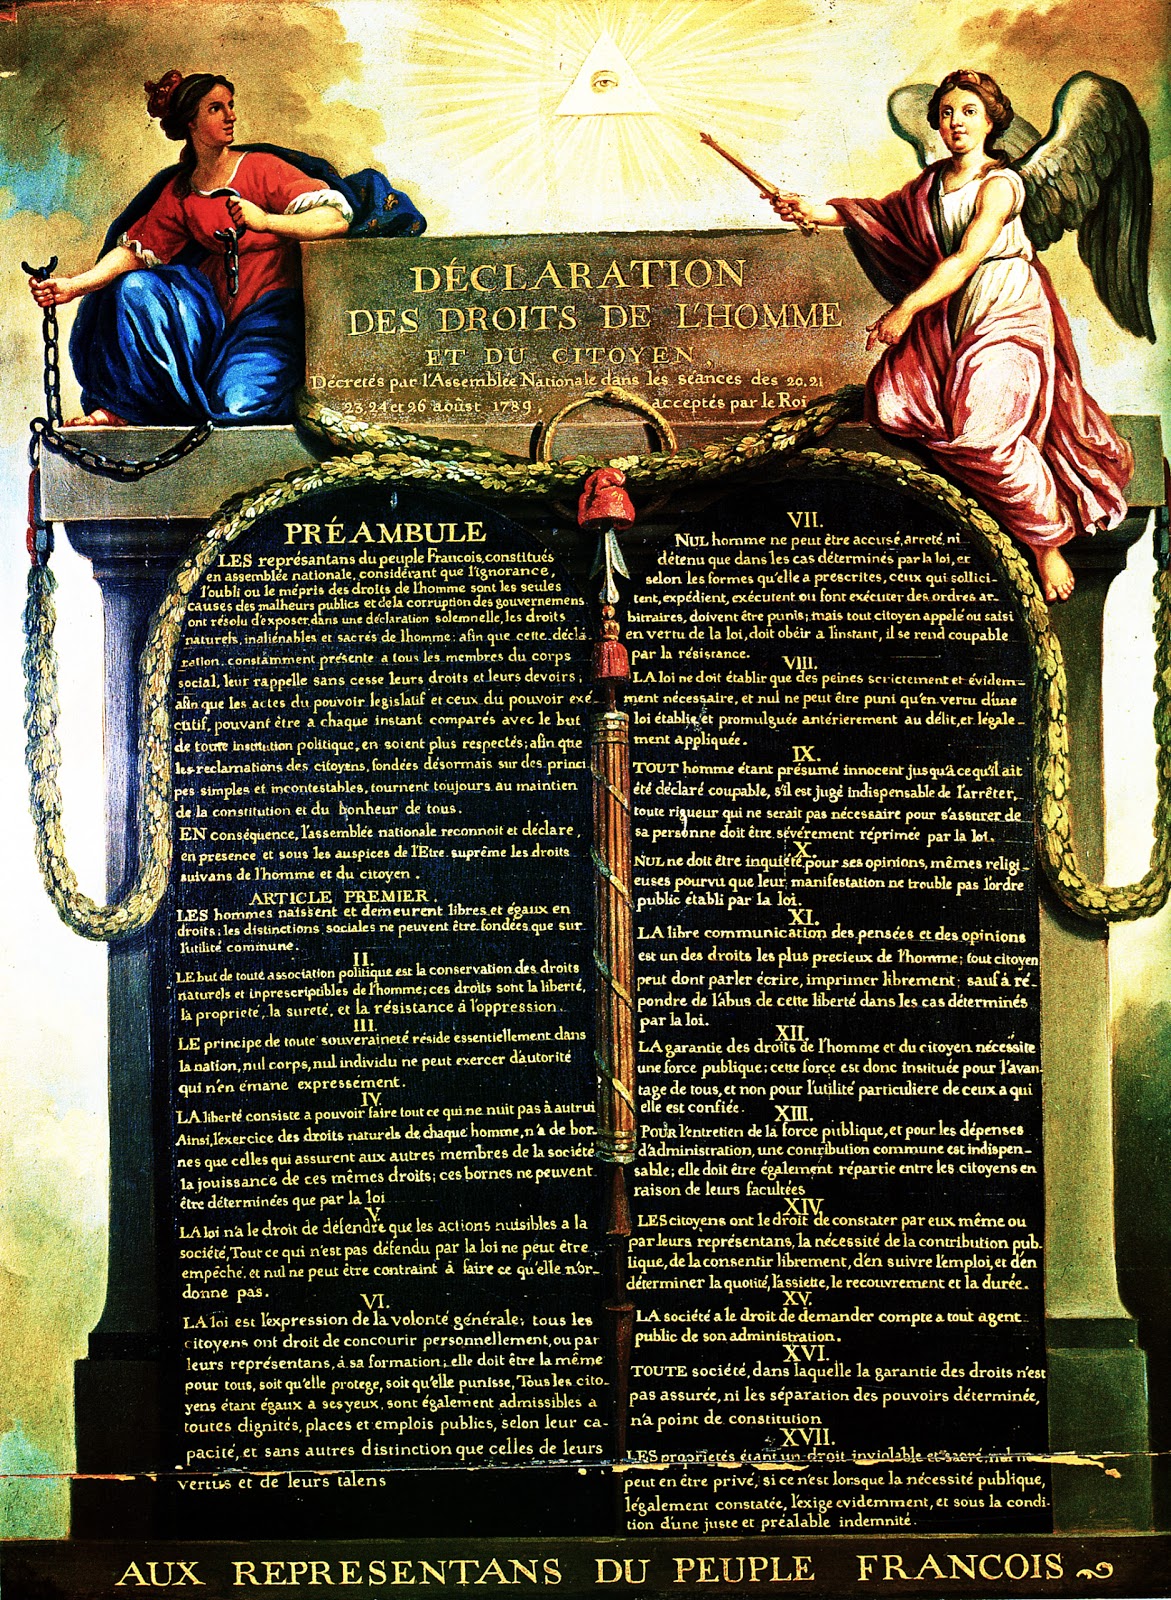 DÉCLARATION
DES DROITS DE L'HOMME
ET DU CITOYEN,
Décretés par l'Assemblée Nationale dans les séances des 20, 21
23, 24 et 26 août 1789, acceptés par le Roi
PRÉAMBULE
LES représantans du peuple Francois, constitués
en assemblée nationale, considérant que l'ignorance,
l'oubli ou le mépris des droits de l'homme sont les seules
causes des malheurs publics et de la corruption des gouvernemens
ont résolu d'exposer dans une déclaration solemnelle, les droits
naturels, inaliénables et sacrés de l'homme: afin que cette décla-
ration, constamment présente a tous les membres du corps
social, leur rappelle sans cesse leurs droits et leurs devoirs;
afin que les actes du pouvoir legislatif et ceux du pouvoir exé-
cutif, pouvant être a chaque instant comparés avec le but
de toute institution politique, en soient plus respectés; afin que
les reclamations des citoyens, fondées désormais sur des princi
pes simples et incontestables, tournent toujours au maintien
de la constitution et du bonheur de tous.
EN conséquence, l'assemblée nationale reconnoit et déclare,
en presence et sous les auspices de l'Etre suprême les droits
suivans de l'homme et du citoyen.
ARTICLE PREMIER.
LES hommes naissent et demeurent libres et égaux en
droits; les distinctions sociales ne peuvent être fondées que sur
l'utilité commune.
II.
LE but de toute association politique est la conservation des droits
naturels et inprescriptibles de l'homme; ces droits sont la liberté,
la propriete, la sureté, et la résistance à l'oppression.
III.
LE principe de toute souveraineté réside essentiellement dans
la nation, nul corps, nul individu ne peut exercer d'autorité
qui n'en émane expressément.
IV.
LA liberté consiste a pouvoir faire tout ce qui ne nuit pas à autrui
Ainsi, l'exercice des droits naturels de chaque homme, n'a de bor-
nes que celles qui assurent aux autres membres de la société
la jouissance de ces mêmes droits; ces bornes ne peuvent
être déterminées que par la loi
V.
LA loi n'a le droit de défendre que les actions nuisibles a la
société, Tout ce qui n'est pas défendu par la loi ne peut être
empêché, et nul ne peut être contraint à faire ce qu'elle n'or-
donne pas.
VI.
LA loi est l'expression de la volonté générale; tous les
citoyens ont droit de concourir personnellement, ou par
leurs représentans, à sa formation; elle doit être la même
pour tous, soit qu'elle protege, soit qu'elle punisse, Tous les cito-
yens étant égaux a ses yeux, sont également admissibles a
toutes dignités, places et emplois publics, selon leur ca-
pacité, et sans autres distinction que celles de leurs
vertus et de leurs talens
VII.
NUL homme ne peut être accusé, arreté, ni
détenu que dans les cas déterminés par la loi, et
selon les formes qu'elle a prescrites, ceux qui sollici-
tent, expédient, exécutent ou font exécuter des ordres ar-
bitraires, doivent être punis; mais tout citoyen appelé ou saisi
en vertu de la loi, doit obéir a l'instant, il se rend coupable
par la résistance.
VIII.
LA loi ne doit établir que des peines strictement et évidem-
ment nécessaire, et nul ne peut être puni qu'en vertu d'une
loi établie et promulguée antérierement au délit, et légale
ment appliquée.
IX.
TOUT homme étant présumé innocent jusqu'à ce qu'il ait
été déclaré coupable, s'il est jugé indispensable de l'arrêter,
toute rigueur qui ne serait pas nécessaire pour s'assurer de
sa personne doit être sévèrement réprimée par la loi.
X.
NUL ne doit être inquiété pour ses opinions, mêmes religi
euses pourvu que leur manifestation ne trouble pas l'ordre
public établi par la loi.
XI.
LA libre communication des pensées et des opinions
est un des droits les plus precieux de l'homme; tout citoyen
peut dont parler écrire, imprimer librement: sauf à ré-
pondre de l'abus de cette liberté dans les cas déterminés
par la loi.
XII.
LA garantie des droits de l'homme et du citoyen nécessite
une force publique; cette force est donc instituée pour l'avan-
tage de tous, et non pour l'utilité particuliere de ceux a qui
elle est confiée.
XIII.
POUR l'entretien de la force publique, et pour les dépenses
d'administration, une contribution commune est indispen-
sable; elle doit être également répartie entre les citoyens en
raison de leurs facultées
XIV.
LES citoyens ont le droit de constater par eux même ou
par leurs représentans, la nécessité de la contribution pub-
lique, de la consentir librement, d'en suivre l'emploi, et d'en
déterminer la quotité, l'assiette, le recouvrement et la durée.
XV.
LA société a le droit de demander compte a tout agent
public de son administration.
XVI.
TOUTE société, dans laquelle la garantie des droits n'est
pas assurée, ni les séparation des pouvoirs déterminée,
n'a point de constitution
XVII.
LES proprietés étant un droit inviolable et sacré, nul ne
peut en être privé, si ce n'est lorsque la nécessité publique,
légalement constatée, l'exige evidemment, et sous la condi-
tion d'une juste et préalable indemnité.
AUX REPRESENTANS DU PEUPLE FRANCOIS